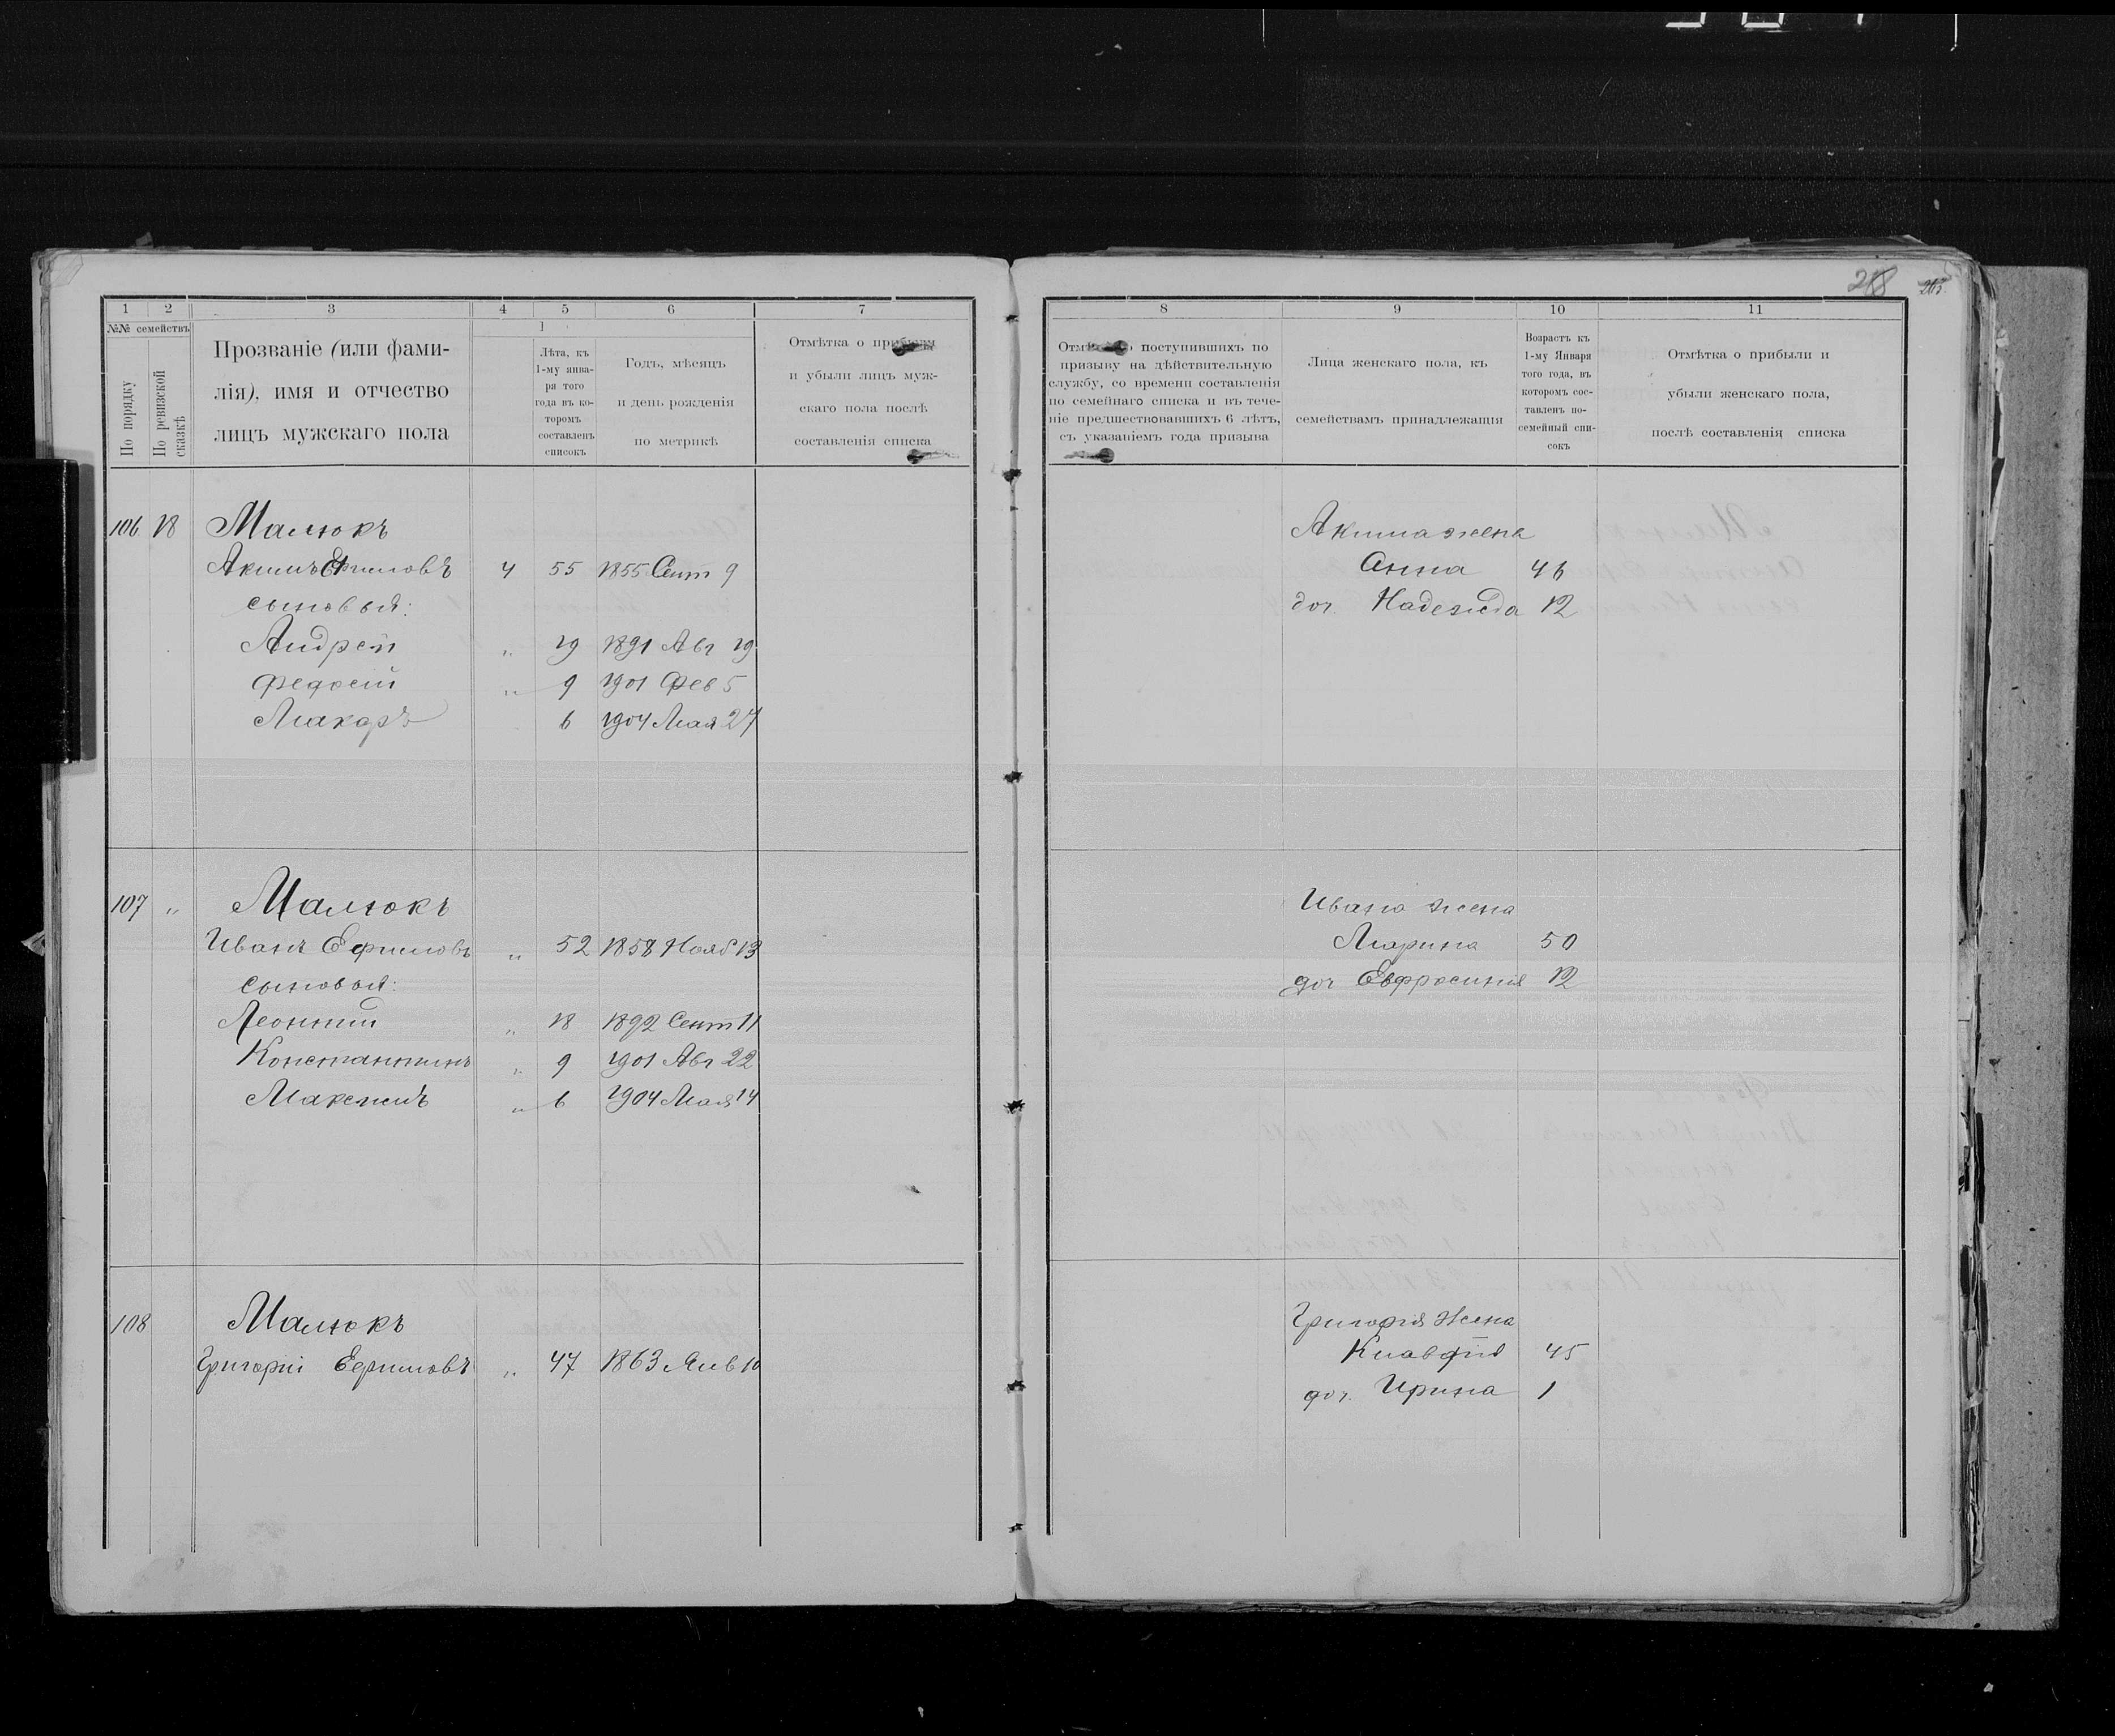 218
1
2
3
4
5
6
7
№№ семействъ
По порядку
По ревизской сказкѣ
Прозваніе (или фами-
лія), имя и отчество
лицъ мужскаго пола
Лѣта, къ
1-му янва-
ря того
года въ ко-
торомъ
составленъ
списокъ
Годъ, мѣсяцъ
и день рожденія
по метрикѣ
Отмѣтка о прибыли
и убыли лицъ муж-
скаго пола послѣ
составленія списка
106 18 Малюкъ
Акимъ Ефимовъ 4 55 1855 Сент 9
сыновья:
Андрей „ 19 1891 Авг 19
Федосій „ 9 1901 Фев 5
Макаръ 6 1904 Мая 27
107 „ Малюкъ
Иванъ Ефимовъ „ 52 1858 Нояб 13
сыновья:
Леонтій „ 18 1892 Сент 11
Константинъ „ 9 1901 Авг 22
Максимъ „ 6 1904 Мая 14
108 Малюкъ
Григорій Ефимовъ „ 47 1863 Янв 10
8
9
10
11
поступившихъ по
призыву на дѣйствительную
службу, со времени составленія
по семейнаго списка и въ тече-
ніе предшествовавшихъ 6 лѣтъ,
съ указаніемъ года призыва
Лица женскаго пола, къ
семействамъ принадлежащія
Возрастъ къ
1-му Января
того года, въ
которомъ сос-
тавленъ по-
семейный спи-
сокъ
Отмѣтка о прибыли и
убыли женскаго пола,
послѣ составленія списка
Акима жена
Анна 46
доч. Надежда 12
Ивана жена
Марина 50
доч Евфросинія 12
Григорія жена
Клавдія 45
доч. Ирина 1